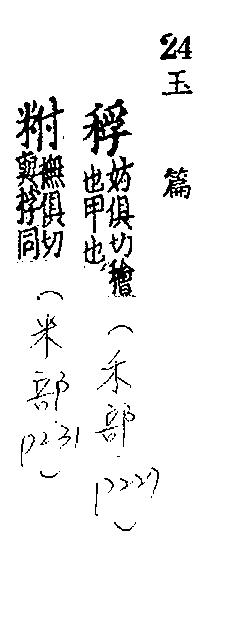 24
玉篇
稃妨俱切穭
也甲也
(禾部
P227)
粰撫俱切
與稃同
(米部
P231)